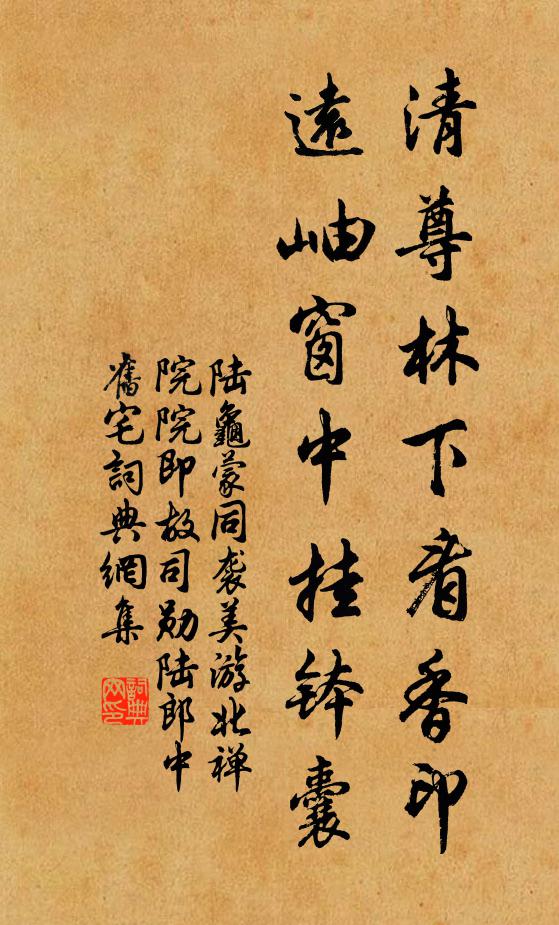 清尊林下看香印
遠岫窗中挂鉢囊
陆龜蒙同袭美游北禅
院院即故司勋陆郎中
舊宅詞典網集
詞典网印